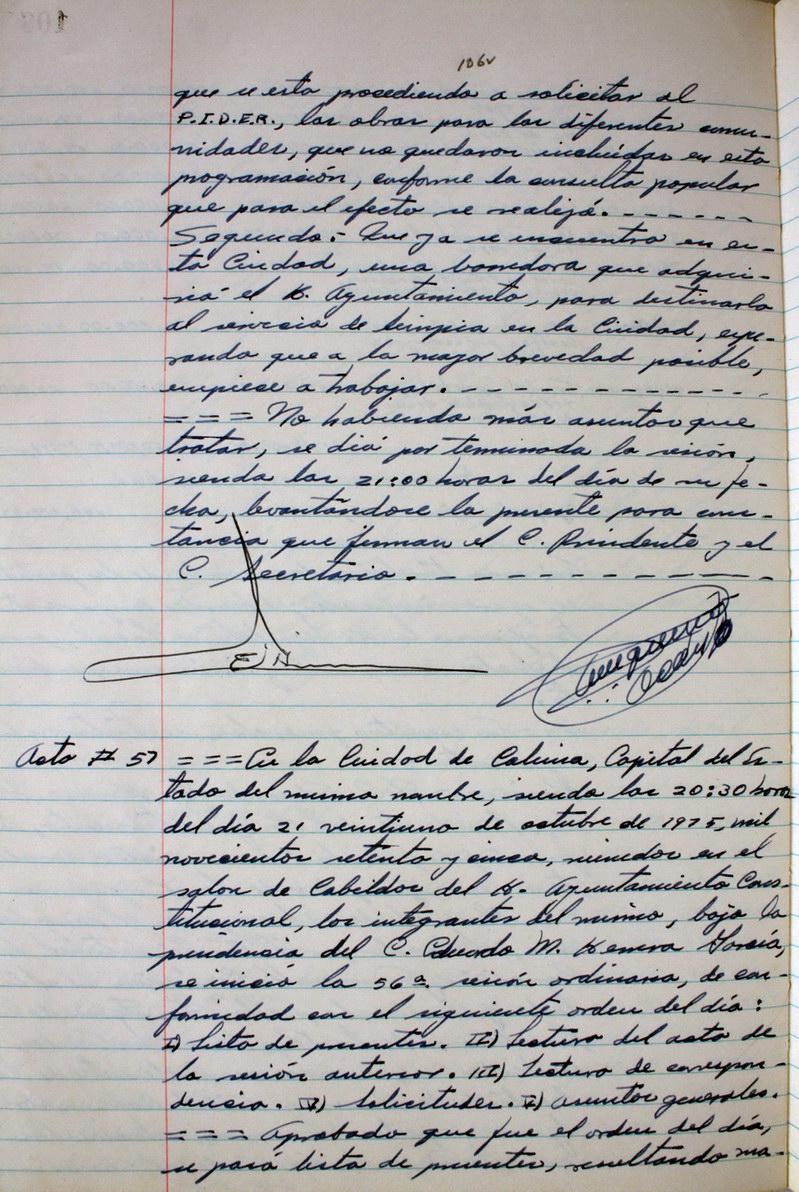 106v
que se esta procediendo a solicitar al
P.I.D.E.R., las obras para las diferentes comu-
nidades, que no quedaron incluídas en esta
programación, conforme la consulta popular
que para el efecto se realizó. - - - - - -
Segundo:- Que ya se encuentra en es-
ta Ciudad, una barredora que adqui-
rió el H. Ayuntamiento, para destinarla
al servicio de limpia en la Ciudad, espe-
rando que a la mayor brevedad posible,
empiece a trabajar. - - - - - - - - - - - - -
= = = No habiendo más asuntos que
tratar, se dió por terminada la sesión,
siendo las 21:00 horas del día de su fe-
cha, levantándose la presente para cons-
tancia que firman el C. Presidente y el
C. Secretario. - - - - - - - - - - - - -
Acta # 57 = = = En la Ciudad de Colima, Capital del Es-
tado del mismo nombre, siendo las 20:30 horas
del día 21 veintiuno de octubre de 1975, mil
novecientos setenta y cinco, reunidos en el
salon de Cabildos del H. Ayuntamiento Cons-
titucional, los integrantes del mismo, bajo la
presidencia del C. Eduardo M. Herrera García,
se inició la 56a. sesión ordinaria, de con-
formidad con el siguiente orden del día:
I) Lista de presentes. II) Lectura del acta de
la sesión anterior. III) Lectura de correspon-
dencia. IV) Solicitudes. V) Asuntos generales.
= = = Aprobado que fue el orden del día,
se pasó lista de presentes, resultando ma-